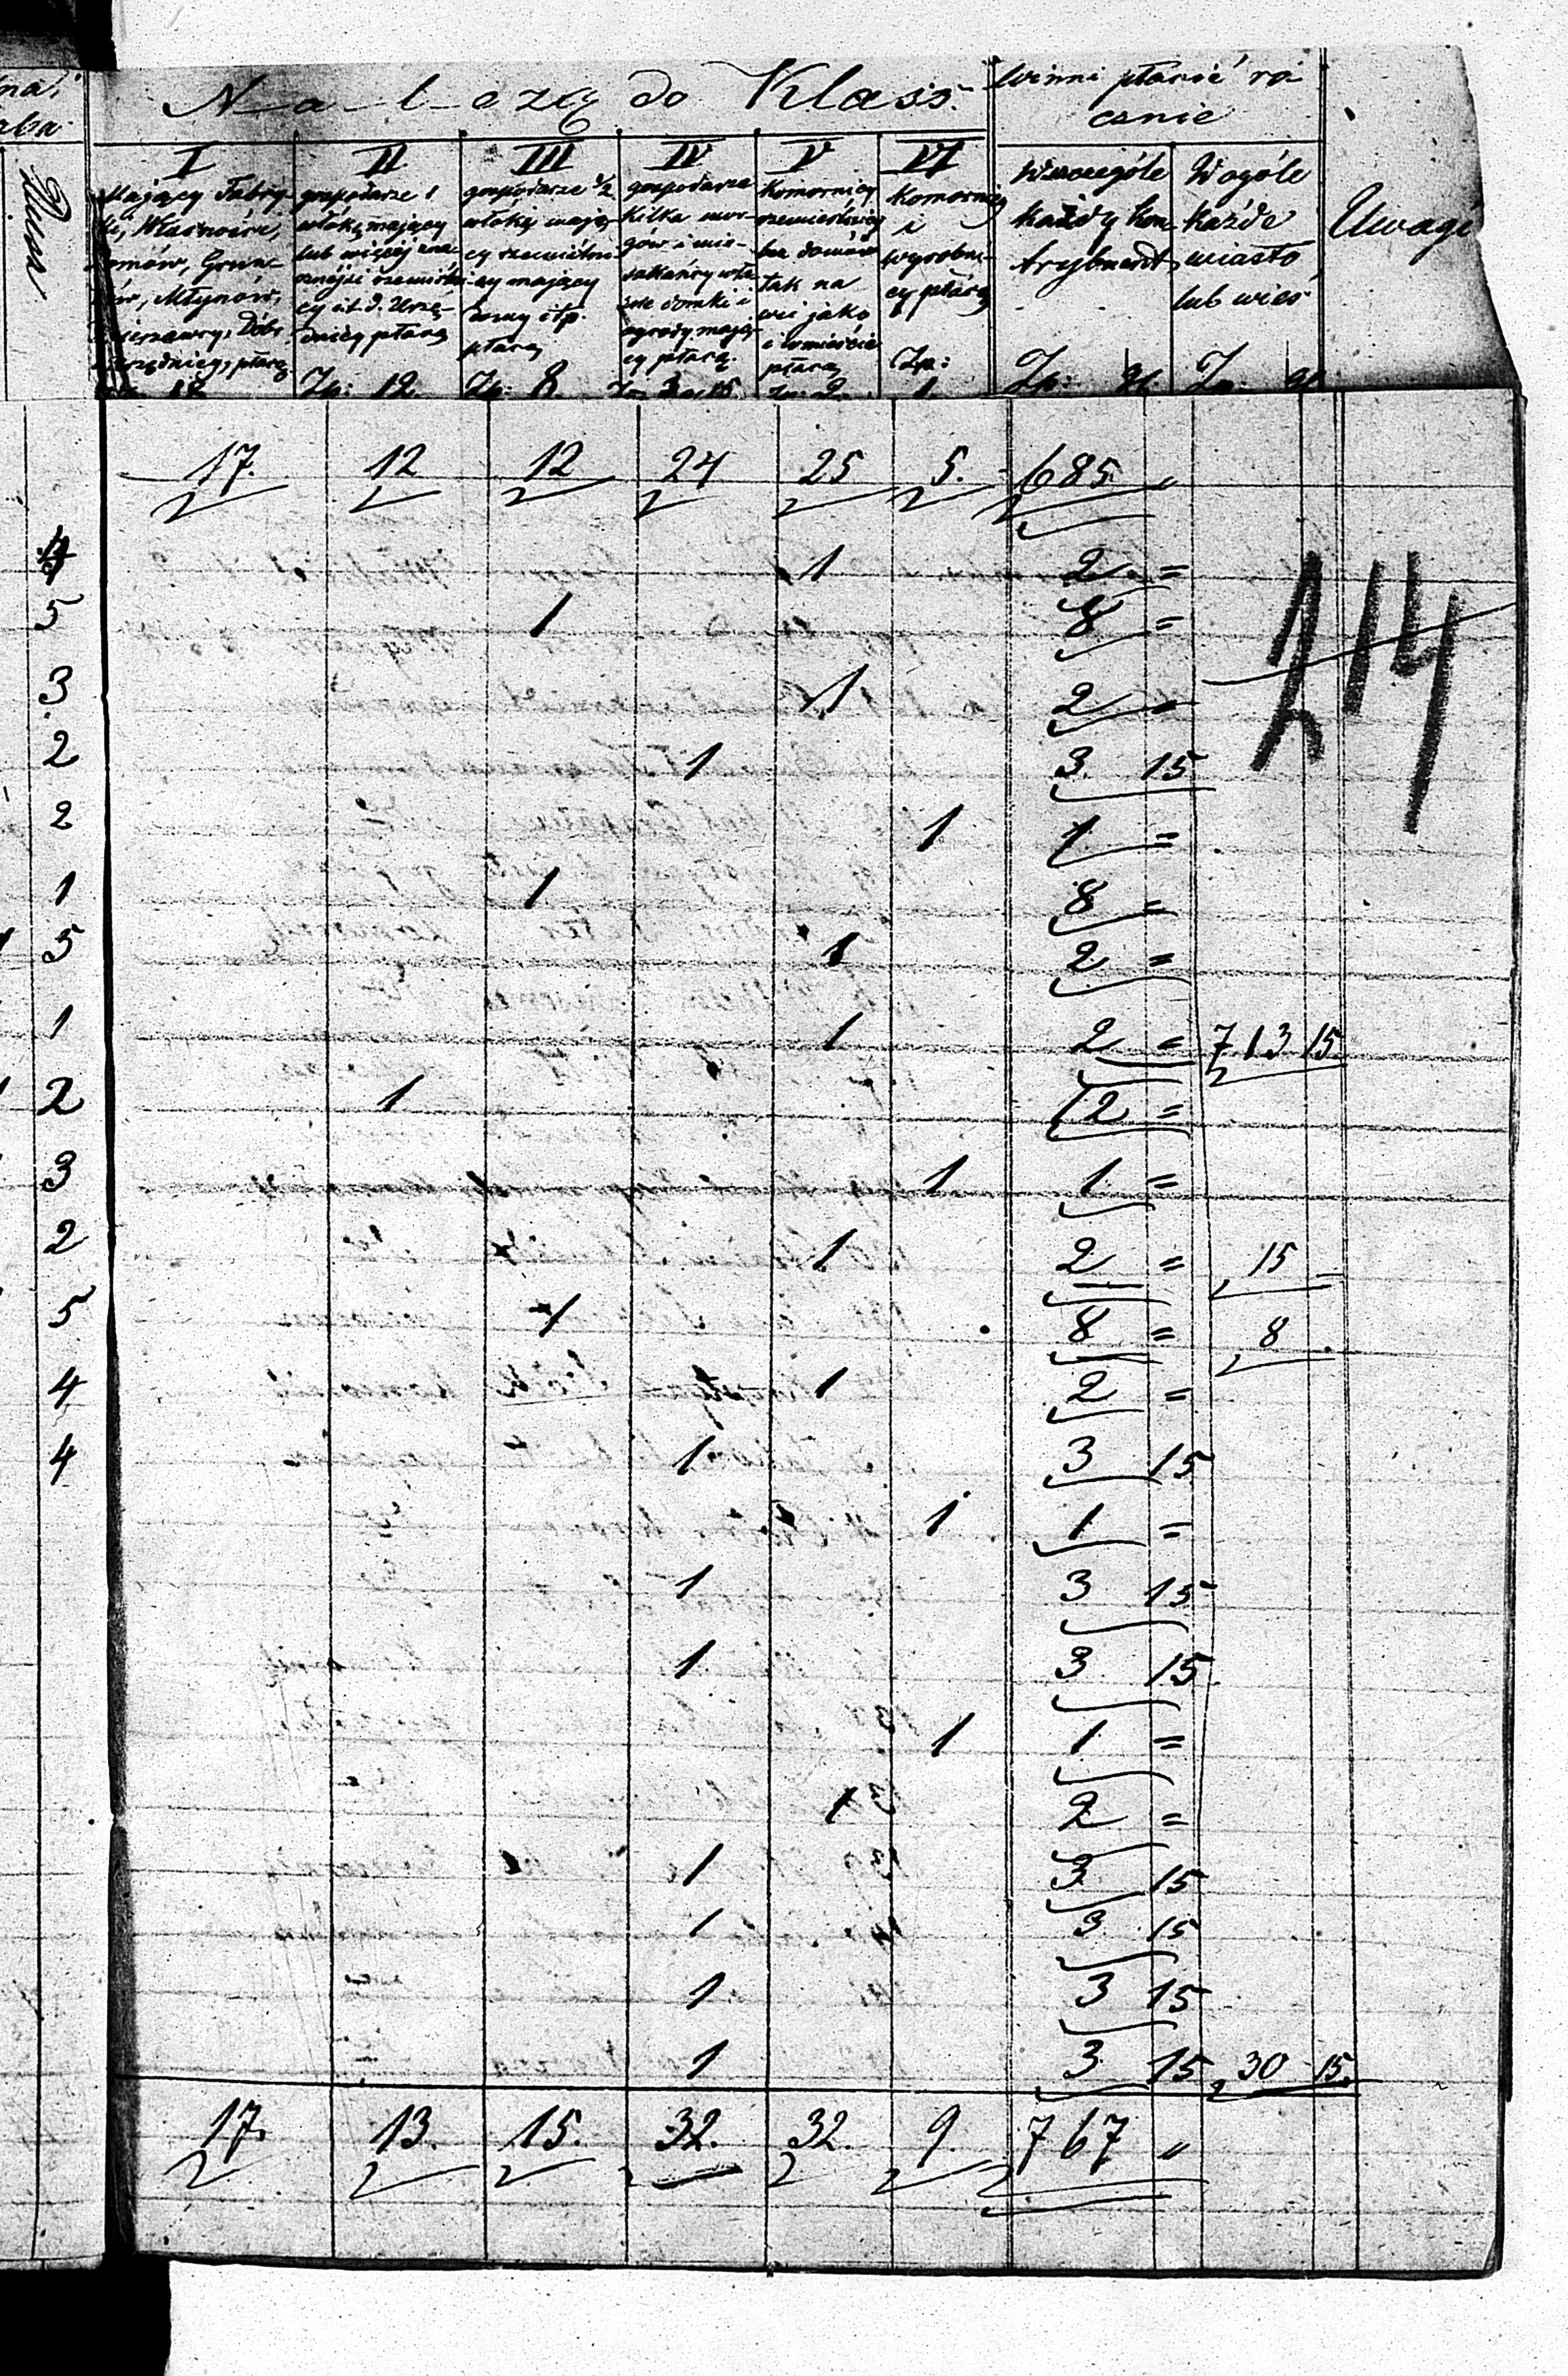 Należą do Klass.
Winni płacić ro
cznie
Dusz
I
Mający Fabry-
Własności,
Domów,
Młynów,
Dóbr
płacą
II
gospodarze 1
włókę mający
lub więcej zna-
czniejsi rzemieślni
cy i.t.d. Urzę-
dnicy płacą
Zp: 12.
III
gospodarze ½
włóki mają-
cy rzemieślni
cy mający
domy i tp.
płacą
Zp: 8.
IV
gospodarze
kilka mor-
gów i mie-
szkańcy wła-
sne domki i
ogrody mają-
cy płacą.
Zp: 3 g. 15
V
Komornicy
rzemieślnicy
bez domów
tak na
wsi jako
i w mieście
płacą
Zp: 2.
VI
Komornicy
i
wyrobni-
cy płacą
Zp:
1.
Wszczególe
każdy kon
trybuent
Zp: gr.
W ogóle
każde
miasto
lub wieś
Zp: gr
Uwagi
17. 12 12 24 25 5. 685 "
4 1 2 =
5 1 8 =
3 1 2 =
214
2 1 3. 15
2 1 1 =
1 1 8 =
5 1 2 =
1 1 2 = 713 15.
2 1 12 =
3 1 1 =
2 1 2 = 15 =
5 1 8 = 8 .
4 1 2 =
4 1 3 15
1 1 =
1 3 15
1 3 15
1 1 =
1 2 =
1 3 15
1 3 15
1 3 15
1 3 15 30 15.
17. 13. 15. 32. 32. 9. 767 "